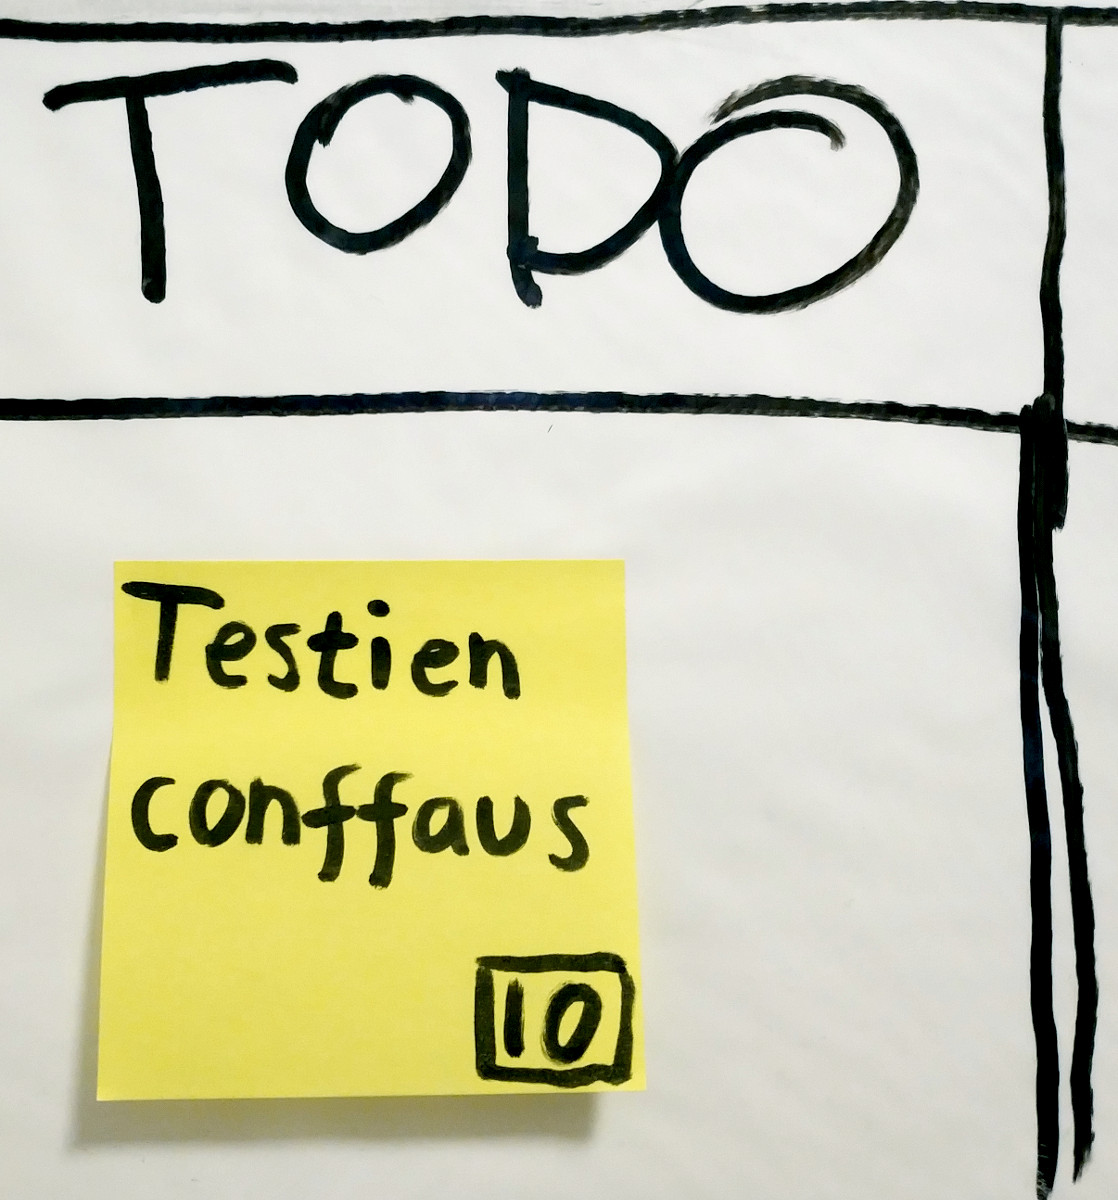 TODO
Testien
conffaus
10